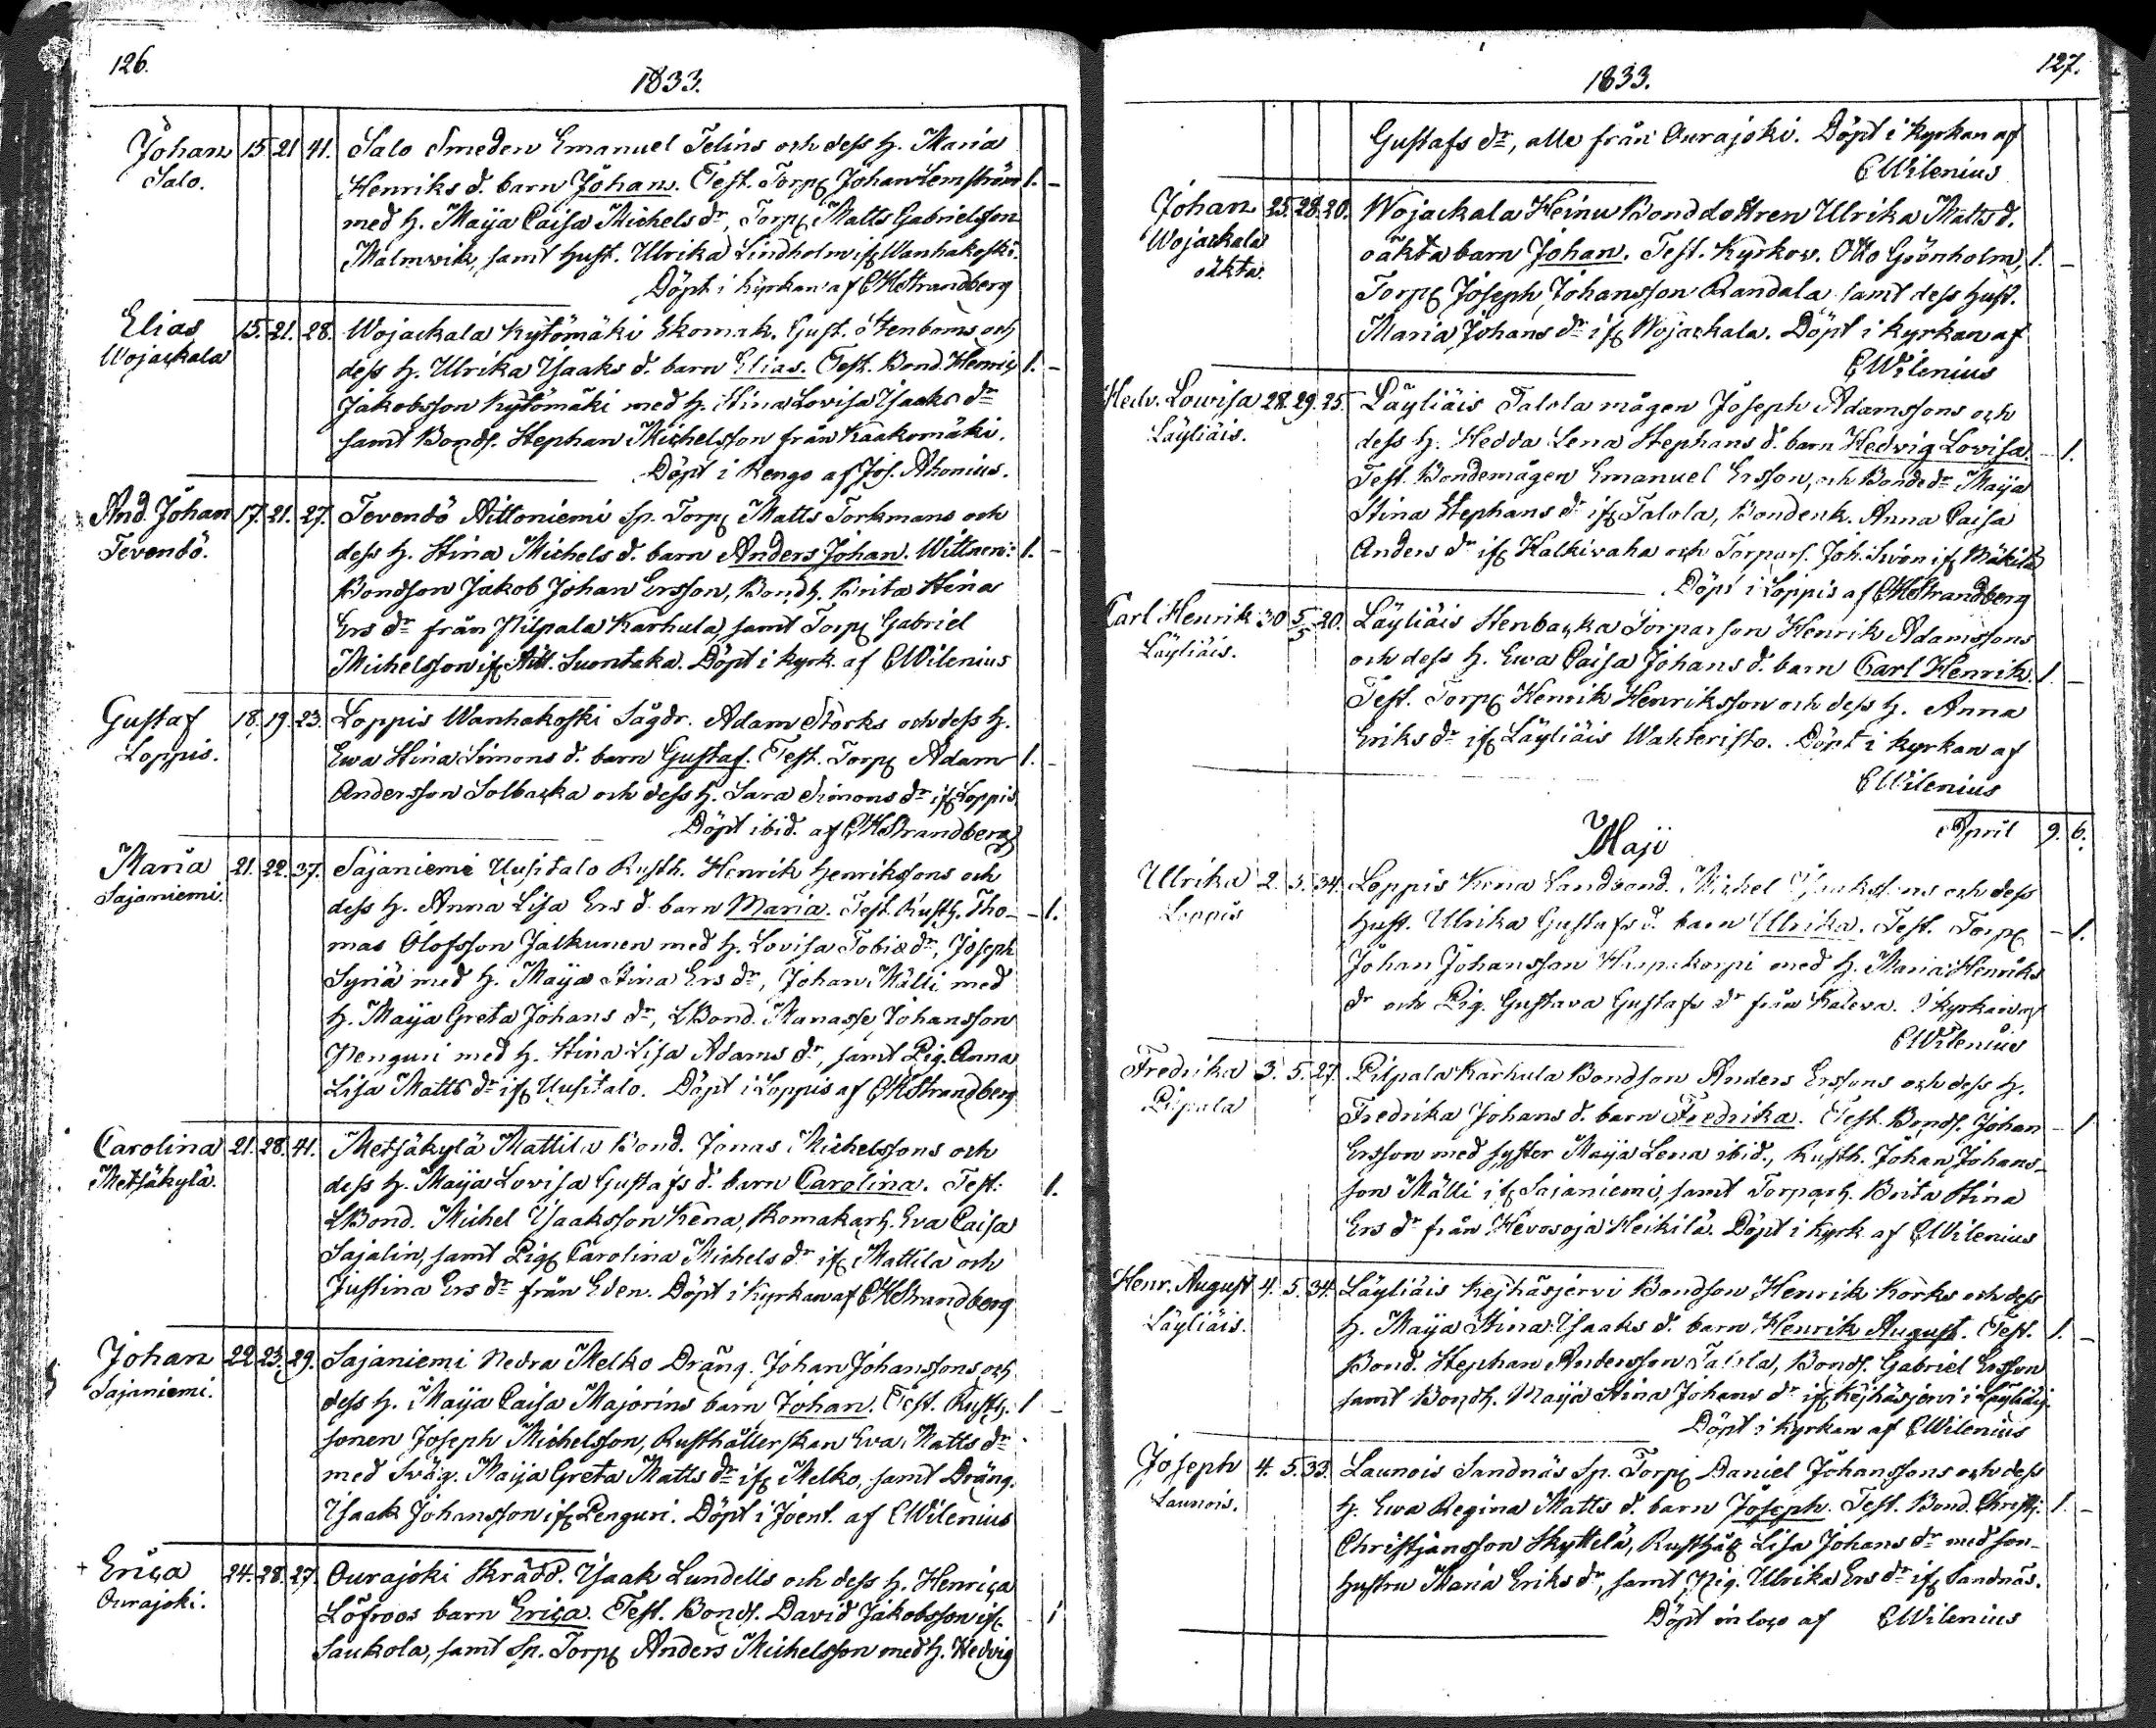 126.
1833.
Johan 15 21 41. Salo Smeden Emanuel Telins och dess h. Maria
Salo. Henriks d. barn Johan. Test. Torp. Johan Lemström 1. -
med h. Maija Caisa Michels dr, Torp. Matts Gabrielsson
Malmwik, samt hust. Ulrika Lindholm if. Wanhakoski.
Döpt i Kyrkan af CHStrandberg
Elias 15. 21. 28. Wojackala Kytömäki Skomak. Gust. Stenboms och
Wojackala dess h. Ulrika Isaaks d. barn Elias. Test. Bond. Henric 1. -
Jakobsson Kytömäki med h. Stina Lovisa Isaaks dr
samt Bonds. Stephan Michelsson från Kaakomäki.
Döpt i Rengo af Jos. Ahonius.
And. Johan 17. 21. 27. Tevendö Aittoniemi Sp. Torp. Matts Torkmans och
Tevendö. dess h. Stina Michels d. barn Anders Johan. Wittnen: 1. -
Bondson Jakob Johan Ersson, Bondh. Brita Stina
Ers dr från Pilpala Karhula, samt Torp. Gabriel
Michelsson if. Aitt. Suontaka. Döpt i kyrk. af CWilenius
Gustaf 18. 19. 23. Loppis Wanhakoski Sågdr. Adam Storks och dess h.
Loppis. Ewa Stina Simons d. barn Gustaf. Test. Torp. Adam 1. -
Andersson Solbacka och dess h. Sara Simons dr if. Loppis
Döpt ibid. af CHStrandberg
Maria 21. 22. 37. Sajaniemi Uusitalo Rusth. Henrik Henrikssons och
Sajaniemi. dess h. Anna Lisa Ers d. barn Maria. Test. Rusth. Tho- - 1.
mas Olofsson Jalkunen med h. Lovisa Tobiæ dr, Joseph
Syriä med h. Maija Stina Ers dr, Johan Mälli med
h. Maija Greta Johans dr, LBond. Manasse Johansson
Penguri med h. Stina Lisa Adams dr, samt Pig. Anna
Lisa Matts dr if. Uusitalo. Döpt i Loppis af CHStrandberg
Carolina 21. 28. 41. Metsäkylä Mattila Bond. Jonas Michelssons och
Metsäkylä. dess h. Maija Lovisa Gustafs d. barn Carolina. Test: 1.
LBond. Michel Isaaksson Kena, Skomakarh. Eva Caisa
Sajalin, samt Pig. Carolina Michels dr if. Mattila och
Justina Ers dr från Eden. Döpt i Kyrkan af CHStrandberg
Johan 22 23. 29. Sajaniemi Nedra Melko Dräng. Johan Johanssons och
Sajaniemi. dess h. Maija Caisa Majorins barn Johan. Test. Rusth. 1 -
sonen Joseph Michelsson, Rusthållerskan Eva Matts dr
med Swäg. Maija Greta Matts dr if. Melko, samt Dräng.
Isaak Johansson if. Penguri. Döpt i Joent. af CWilenius
+ Erica 24. 28. 27. Ourajoki Skrädd. Isaak Lundells och dess h. Henrica
Ourajoki. Löfroos barn Erica. Test. Bonds. David Jakobsson if. - 1
Saukola, samt Sp. Torp. Anders Michelsson med h. Hedvig
127.
1833.
Gustafs dr, alle från Ourajoki. Döpt i Kyrkan af
CWilenius
Johan 25. 28. 20. Wojackala Heinu Bonddottren Ulrika Matts d.
Wojackala oäkta barn Johan. Test. Kyrkov. Otto Grönholm, 1. -
oäkta. Torp. Joseph Johansson Randala samt dess hust.
Maria Johans dr if. Wojackala. Döpt i kyrkan af
CWilenius
Hedv. Lowisa 28. 29. 25. Läyliäis Talola mågen Joseph Adamssons och
Läyliäis. dess h. Hedda Lena Stephans d. barn Hedvig Lovisa. - 1.
Test. Bondemågen Emanuel Ersson, och Bondedr Maija
Stina Stephans dr if. Talola, Bondenk. Anna Caisa
Anders dr if. Halkivaha och Torpars. Joh. Siven if. Mäkilä
Döpt i Loppis af CHStrandberg
Carl Henrik 30 5/5 20. Läyliäis Stenbacka Torparson Henrik Adamssons
Läyliäis. och dess h. Ewa Caisa Johans d. barn Carl Henrik. 1 -
Test. Torp. Henrik Henriksson och dess h. Anna
Eriks dr if. Läyliäis Wahteristo. Döpt i kyrkan af
CWilenius
April 9. 6.
Maji
Ullrika 2. 5. 34. Loppis Kena Landbond. Michel Isakssons och dess
Loppis hust. Ulrika Gustafs d. barn Ulrika. Test. Torp. - 1.
Johan Johansson Haapakorpi med h. Maria Henriks
dr och Pig. Gustava Gustafs dr från Kaleva. I kyrkan af
CWilenius
Fredrika 3. 5. 27. Pilpala Karhula Bondson Anders Erssons och dess h.
Pilpala Fredrika Johans d. barn Fredrika. Test. Bonds. Johan - 1
Ersson med syster Maija Lena ibid., Rusth. Johan Johans-
son Mälli if. Sajaniemi, samt Torparh. Brita Stina
Ers dr från Hevosoja Heikilä. Döpt i Kyrk. af CWilenius
Henr. August 4. 5. 34. Läyliäis Kejhäsjervi Bondson Henrik Korks och dess
Läyliäis. h. Maija Stina Isaaks d. barn Henrik August. Test. 1. -
Bond. Stephan Andersson Talola, Bonds. Gabriel Ersson
samt Bondh. Maija Stina Johans dr if. Kejhäsjervi i Läyliäis.
Döpt i Kyrkan af CWilenius
Joseph 4. 5. 33. Launois Sandnäs Sp. Torp. Daniel Johanssons och dess
Launois. h. Ewa Regina Matts d. barn Joseph. Test. Bond. Christj: 1. -
Christjansson Skyttelä, Rusthåll. Lisa Johans dr med son-
hustru Maria Eriks dr, samt Pig. Ulrika Ers dr if. Sandnäs.
Döpt in loco af CWilenius